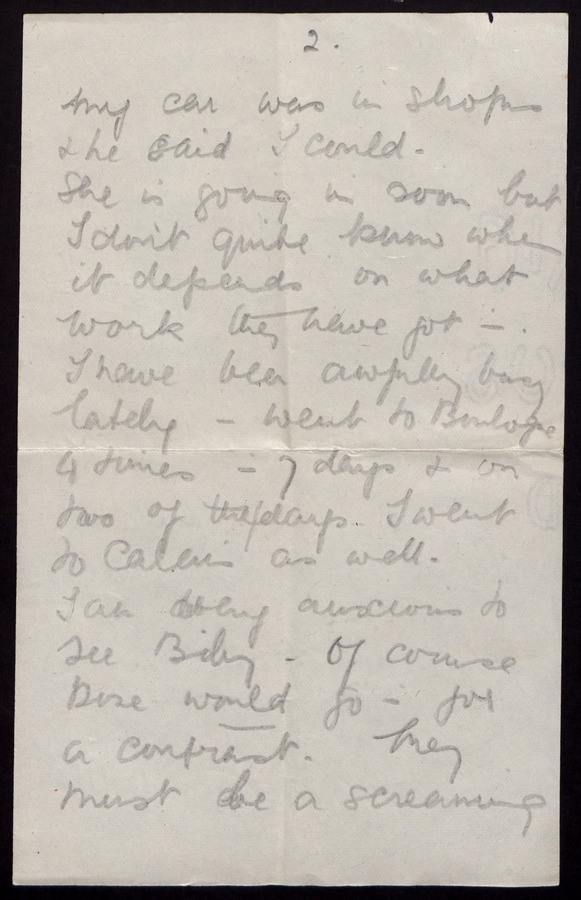 2.
my car was in shops
she said I could -
She is going in soon but
I don't quite know when
it depends on what
work they have got -.
I have been awfully busy
lately - went to Boulogne
4 times - 7 days & on
two of the days. I went
to Calais as well.
I am very anxious to
see Biley - Of course
would go - for
a contrast. They
must be a screaming